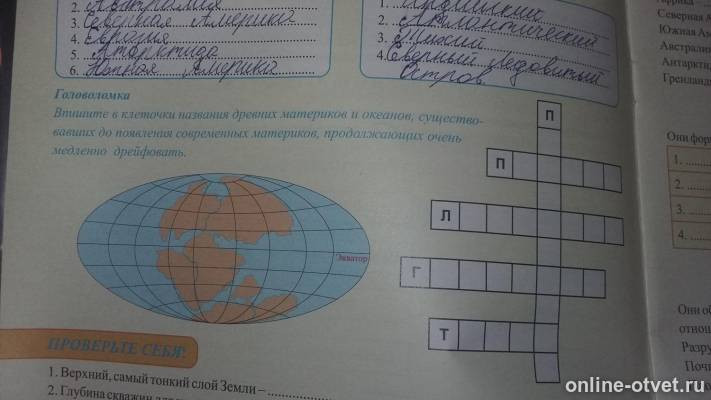 2. Австралия
3. Северная Америка
4. Евразия
5. Антарктида
6. Южная Америка
1. Индийский
2. Атлантический
3. Тихий
4. Северный Ледовитый
Остров
Африка
Северная А
Южная Ам
Австрали
Антаркти
Гренланд
Головоломка
Впишите в клеточки названия древних материков и океанов, существо-
вавших до появления современных материков, продолжающих очень
медленно дрейфовать.
П
П
Л
Г
Т
Экватор
Они фор
1.
2.
3.
4.
ПРОВЕРЬТЕ СЕБЯ!
1. Верхний, самый тонкий слой Земли –
2. Глубина скважин
Они об
отнош
Разру
Почв
online-otvet.ru